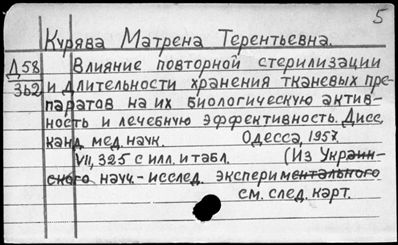 5
Курява Матрена Терентьевна.
Д58 Влияние повторной стерилизации
362 и длительности хранения тканевых пре-
паратов на их биологическую актив-
ность и лечебную эффективность. Дисс.
канд. мед. наук. Одесса, 1957.
VII, 325 с илл. и табл. (Из Украин-
ского научн.-исслед. экспериментального
см. след. карт.